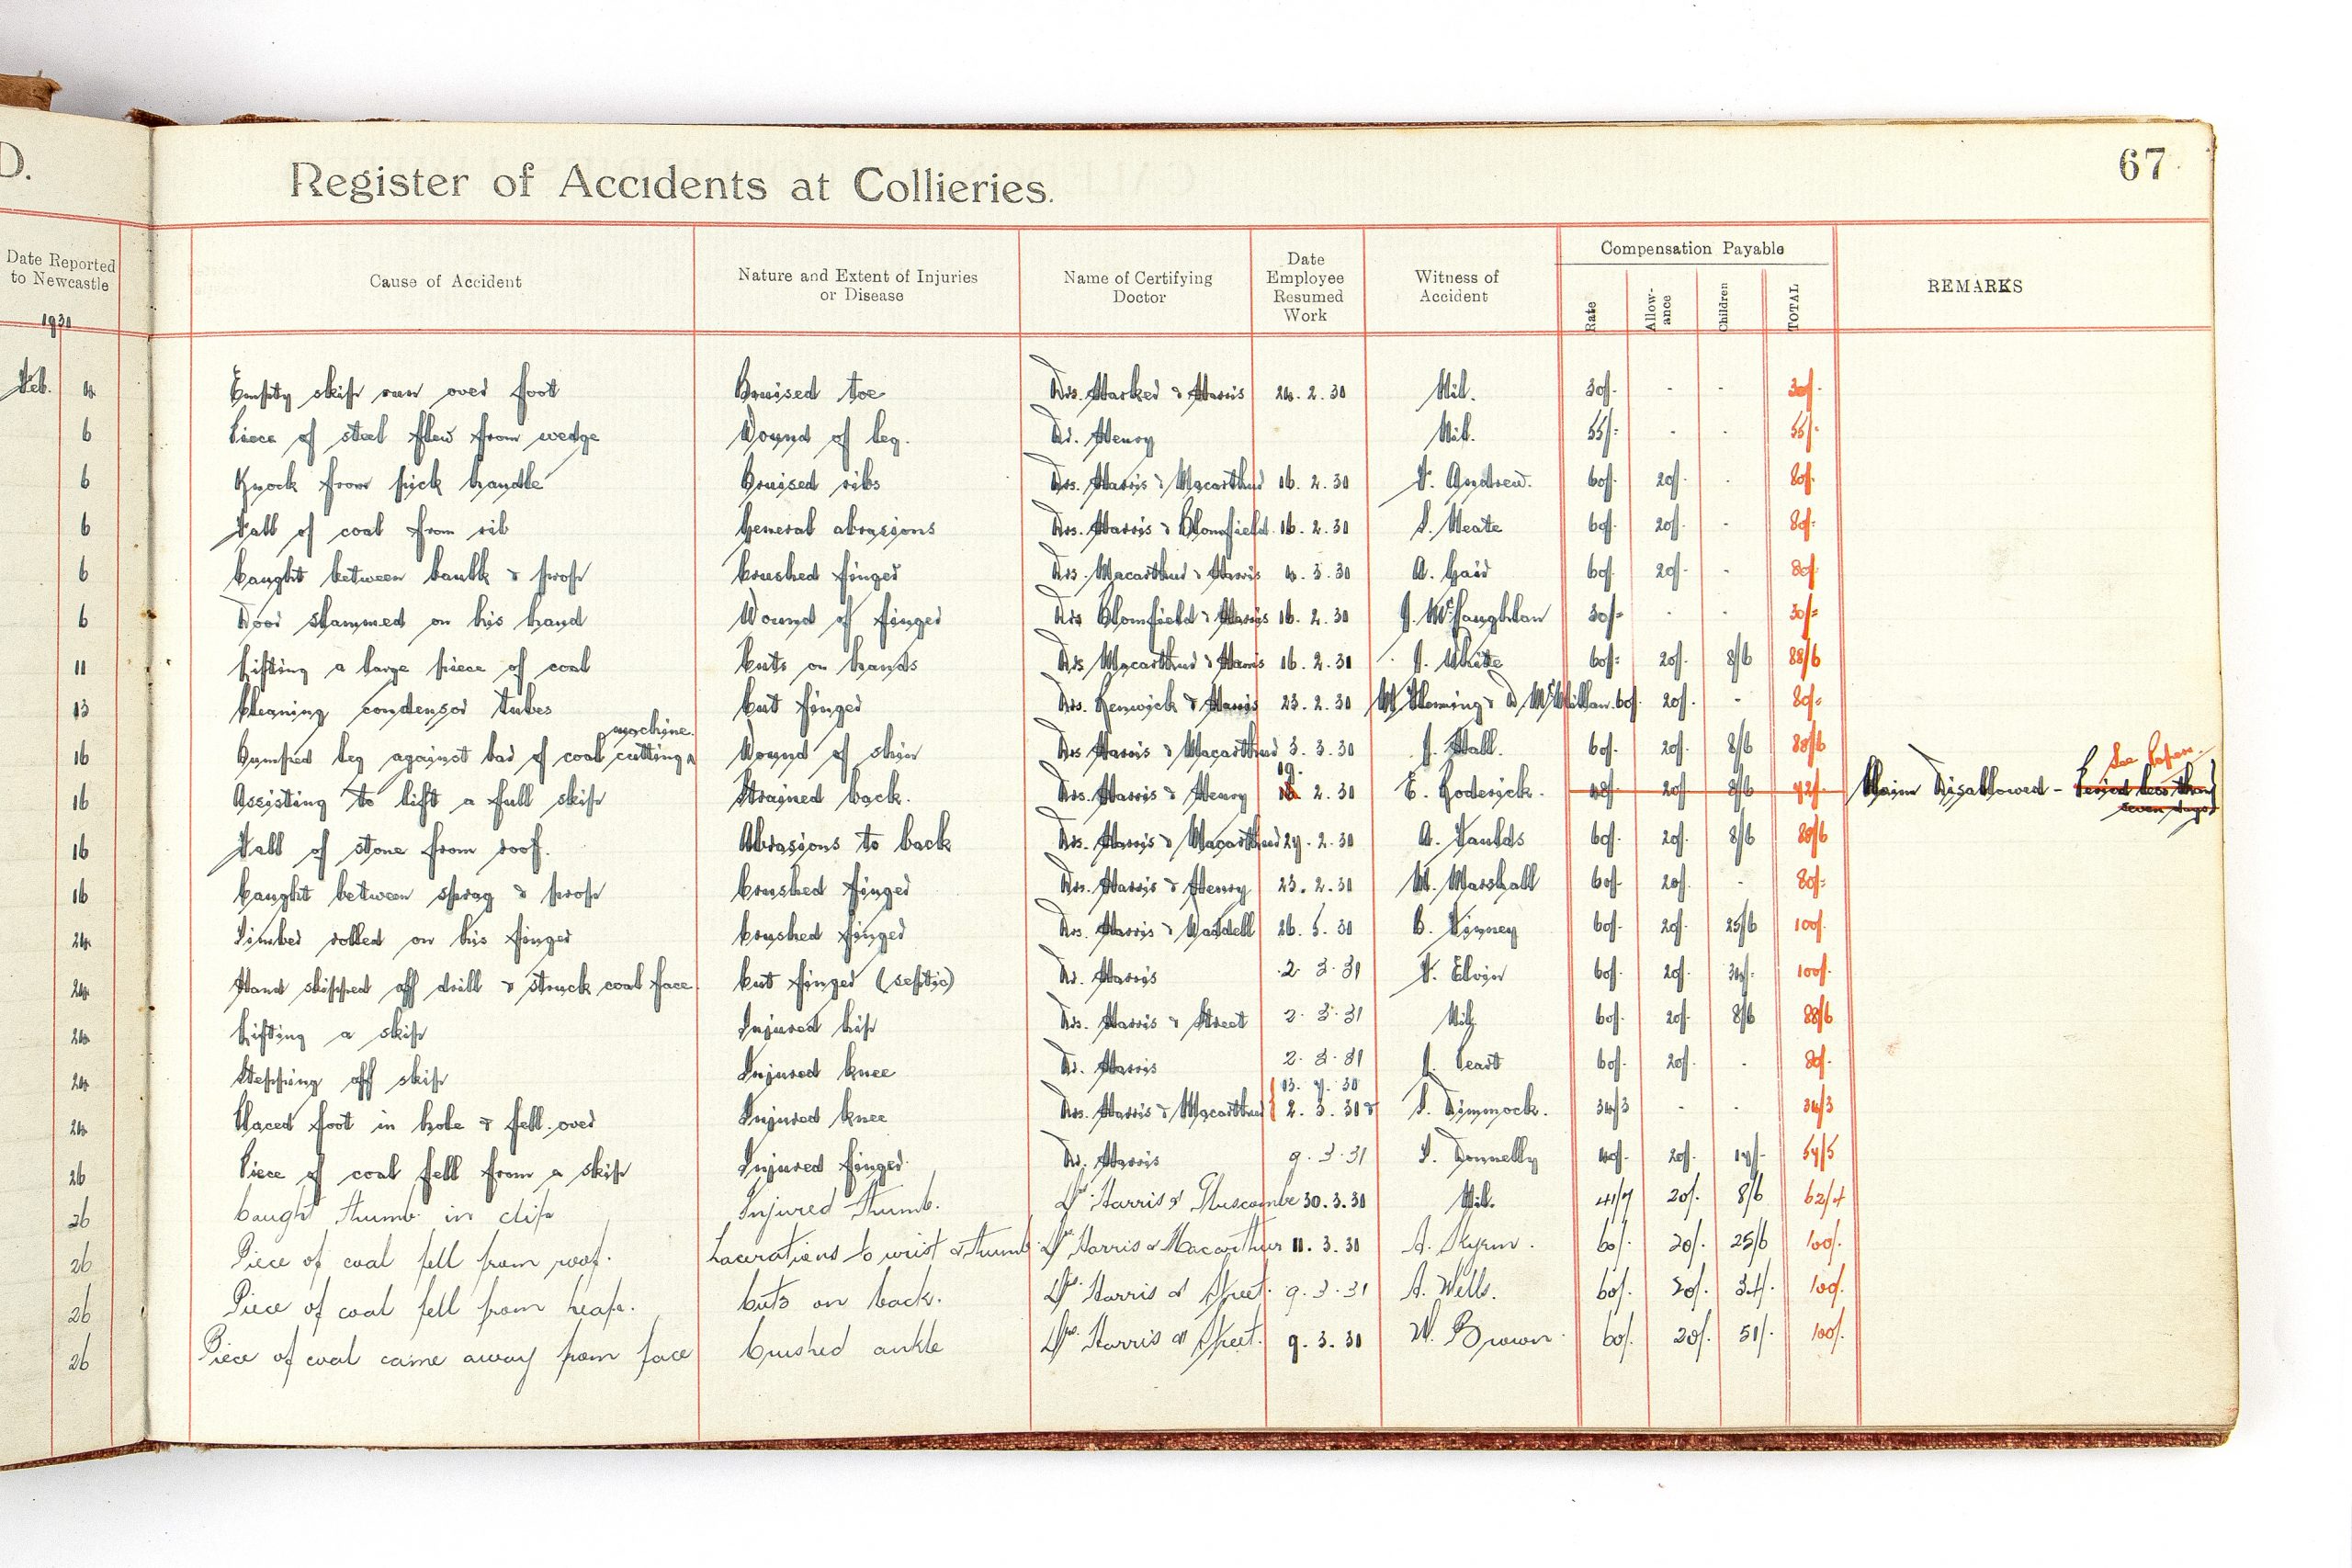 D.
Register of Accidents at Collieries.
67
Date Reported to Newcastle
Cause of Accident
Nature and Extent of Injuries or Disease
Name of Certifying Doctor
Date Employee Resumed Work
Witness of Accident
Compensation Payable
Rate
Allow-ance
Children
TOTAL
REMARKS
1931
Feb. 4 Empty skip ran over foot Bruised toe Drs. Harker & Harris 24.2.30 Nil. 30/- - - 30/-
6 Piece of steel flew from wedge Wound of leg. Dr. Henry Nil. 55/- - - 55/-
6 Knock from pick handle Bruised ribs Drs. Harris & Macarthur 16.2.30 F. Andrew. 60/- 20/- - 80/-
6 Fall of coal from rib General abrasions Drs. Harris & Blomfield. 16.2.30 S. Neate 60/- 20/- - 80/-
6 Caught between baulk & prop Crushed finger Drs. Macarthur & Harris 4.3.30 A. Gair 60/- 20/- - 80/-
6 Door slammed on his hand Wound of finger Drs Blomfield & Harris 16.2.30 J. McLaughlan 30/- - - 30/-
11 Lifting a large piece of coal Cuts on hands Drs Macarthur & Harris 16.2.31 J. White 60/- 20/- 8/6 88/6
13 Cleaning condensor tubes Cut finger Drs. Renwick & Harris 23.2.30 W Fleming & D McMillan. 60/- 20/- - 80/-
machine.
16 Bumped leg against bar of coal cutting Wound of shin Drs Harris & Macarthur 3.3.30 J. Hall. 60/- 20/- 8/6 88/6
19.
See Paper.
16 Assisting to lift a full skip Strained back. Drs. Harris & Henry 2.30 E. Roderick. 20/- 8/6 Claim Disallowed - Period less than
seven days
16 Fall of stone from roof. Abrasions to back Drs. Harris & Macarthur 27.2.30 A. Faulds 60/- 20/- 8/6 88/6
16 Caught between sprag & prop Crushed finger Drs. Harris & Henry 23.2.30 W. Marshall 60/- 20/- - 80/-
24 Timber rolled on his finger Crushed finger Drs. Harris & Waddell 26.5.30 B. Vinney 60/- 20/- 25/6 100/-
24 Hand slipped off drill & struck coal face. Cut finger (septic) Dr. Harris 2.3.31 F. Elvin 60/- 20/- 34/- 100/-
24 Lifting a skip Injured hip Drs. Harris & Street 2.3.31 Nil 60/- 20/- 8/6 88/6
24 Stepping off skip Injured knee Dr. Harris 2.3.31 J. Peart 60/- 20/- - 80/-
13.7.30
24 Placed foot in hole & fell over Injured knee Drs. Harris & Macarthur 2.3.30 & S. Dimmock. 34/3 - - 34/3
26 Piece of coal fell from a skip Injured finger. Dr. Harris 9.3.31 S. Donnelly 40/- 20/- 17/- 54/5
26 Caught thumb in clip Injured thumb. Drs. Harris & Muscombe 30.3.30 Nil. 41/7 20/- 8/6 62/4
26 Piece of coal fell from roof. Lacerations to wrist & thumb. Drs. Harris & Macarthur 11.3.30 A. Skyrm. 60/- 20/- 25/6 100/-
26 Piece of coal fell from heap. Cuts on back. Drs. Harris & Street. 9.3.31 A. Wells. 60/- 20/- 34/- 100/-
26 Piece of coal came away from face Crushed ankle Drs. Harris & Street. 9.3.30 W. Brown. 60/- 20/- 51/- 100/-